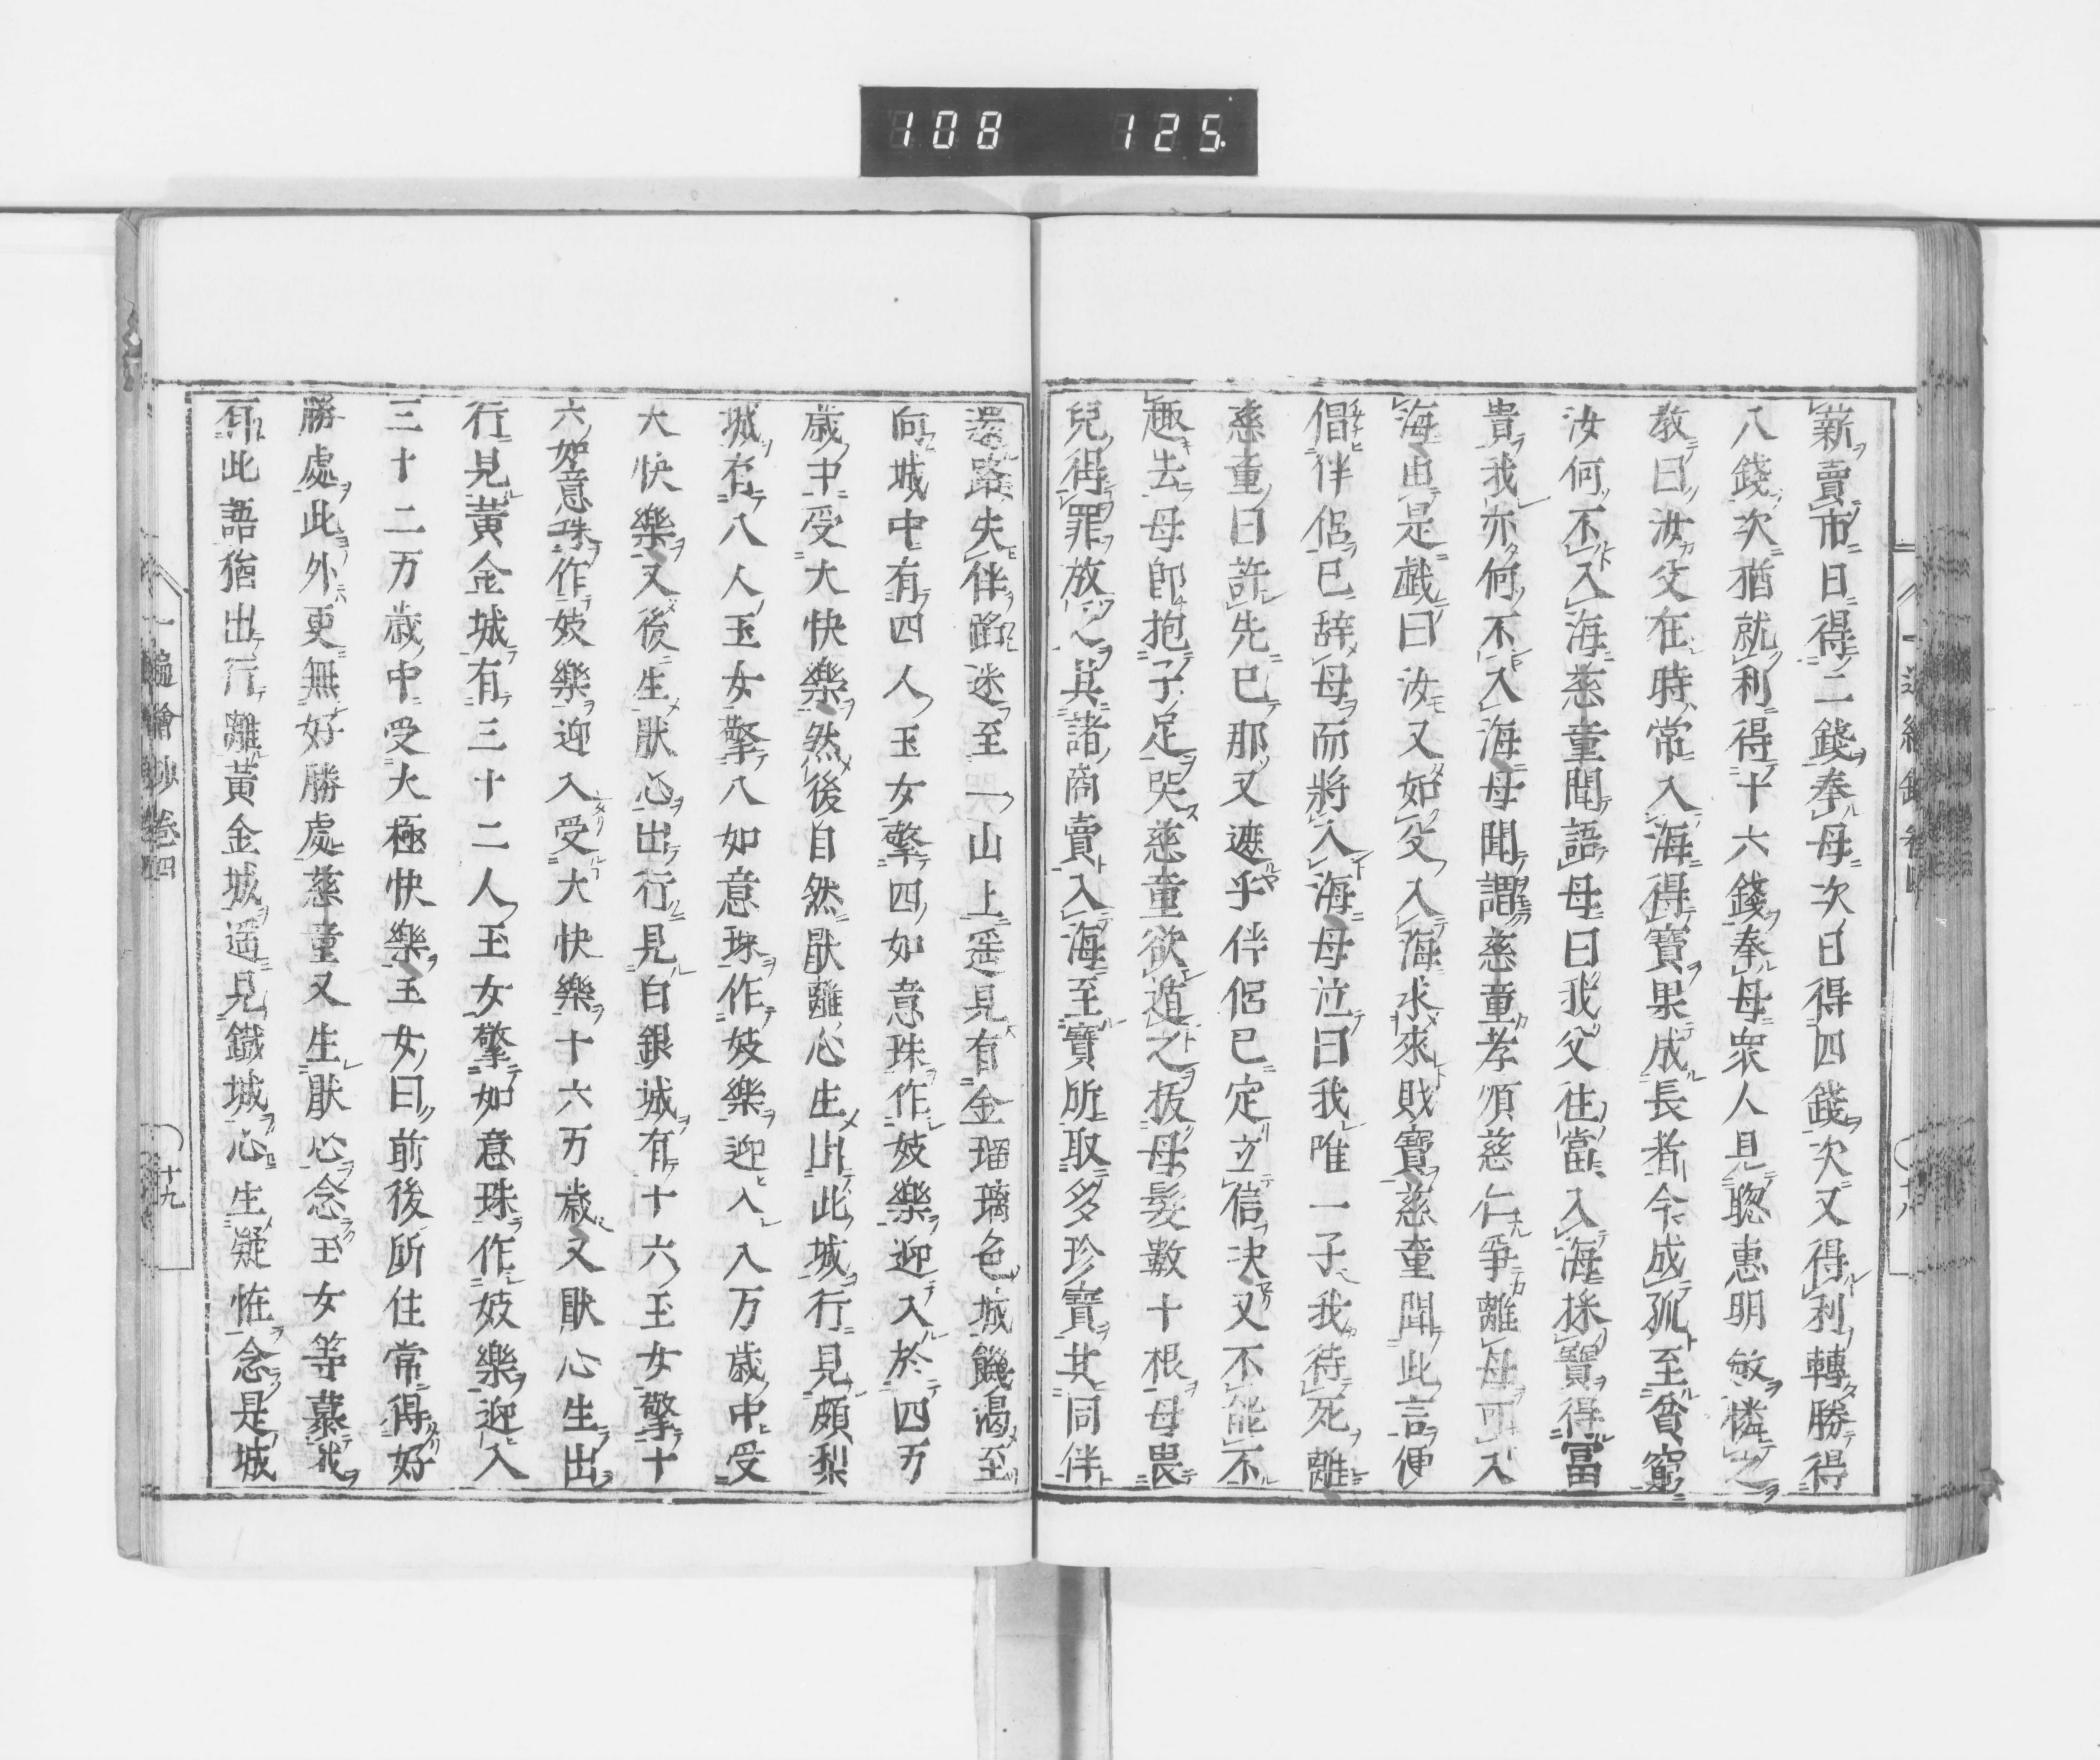 108 125
薪賣市日得二錢奉母次日得四錢次又得利轉勝得
八錢次猶就利得十六錢奉母衆人見聡惠明敏憐之
教曰汝父在時常入海得寶果成長者今成孤至貧窮
汝何不入海慈童聞語母曰我父往當入海採寶得富
貴我亦何不入海母聞謂慈童孝順慈仁爭離母可入
海由是戯曰汝又如父入海求來財寶慈童聞此言便
倡伴侶已辞母而將入海母泣曰我唯一子我待死離
慈童曰許先已那又遮乎伴侶已定立信决又不能不
趣去母即抱子足哭慈童欲遁之拔母髮數十根母畏
兒得罪放之其諸商賣入海至寶所取多珍寶其同伴
還路失伴路迷至一山上遥見有金瑠璃色城饑渇至
向城中有四人玉女擎四如意珠作妓樂迎入於四万
歳中受大快樂然後自然厭離心生出此城行見頗梨
城有八人玉女擎八如意珠作妓樂迎入入万歳中受
大快樂又後生厭心出行見白銀城有十六玉女擎十
六如意珠作妓樂迎入受大快樂十六万歳又厭心生出
行見黄金城有三十二人玉女擎如意珠作妓樂迎入
三十二万歳中受大極快樂玉女曰前後所住常得好
勝處此外更無好勝處慈童又生厭心念玉女等慕我
有此語猶出行離黄金城遥見鐵城心生疑恠念是城
一遍繪鈔卷四
十九